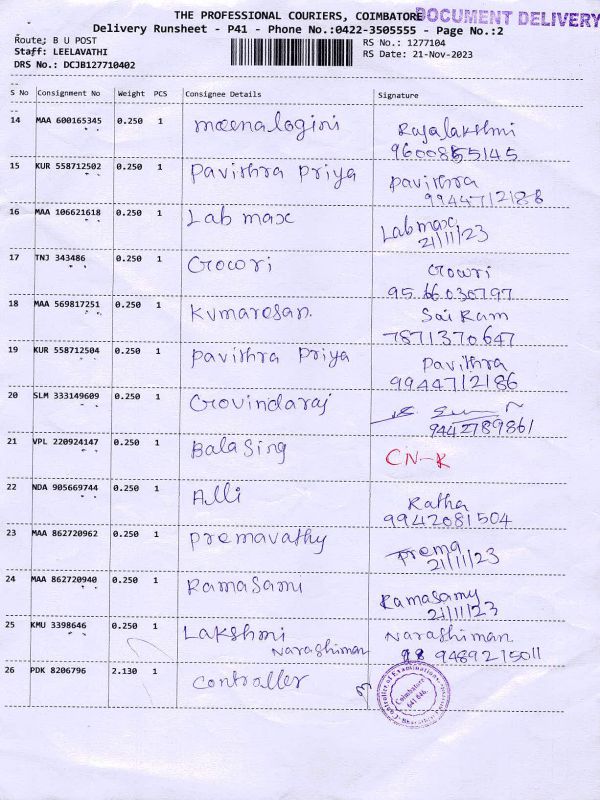 THE PROFESSIONAL COURIERS, COIMBATORE
DOCUMENT DELIVERY
Delivery Runsheet - P41 - Phone No.:0422-3505555 - Page No.:2
Route: B U POST
RS No.: 1277104
Staff: LEELAVATHI
RS Date: 21-Nov-2023
DRS No.: DCJB127710402
S No Consignment No Weight PCS Consignee Details Signature
14 MAA 600165345 0.250 1 meenalogini Rajalakshmi
9600855145
15 KUR 558712502 0.250 1 Pavithra Priya Pavithra
9944712188
16 MAA 106621618 0.250 1 Lab max Labmax
21/11/23
17 TNJ 343486 0.250 1 Gowri Gowri
9566030797
18 MAA 569817251 0.250 1 Kumaresan. Sai Ram
7871370647
19 KUR 558712504 0.250 1 Pavithra Priya Pavithra
9944712186
20 SLM 333149609 0.250 1 Govindaraj
9442789861
21 VPL 220924147 0.250 1 Bala Sing CN-R
22 NDA 905669744 0.250 1 Alli Ratha
9942081504
23 MAA 862720962 0.250 1 Premavathy Prema
21/11/23
24 MAA 862720940 0.250 1 Ramasami Ramasamy
21/11/23
25 KMU 3398646 0.250 1 Lakshmi Narashiman
Narashiman 98 9489215011
26 PDK 8206796 2.130 1 Controller
Controller of Examinations
Coimbatore
641 046.